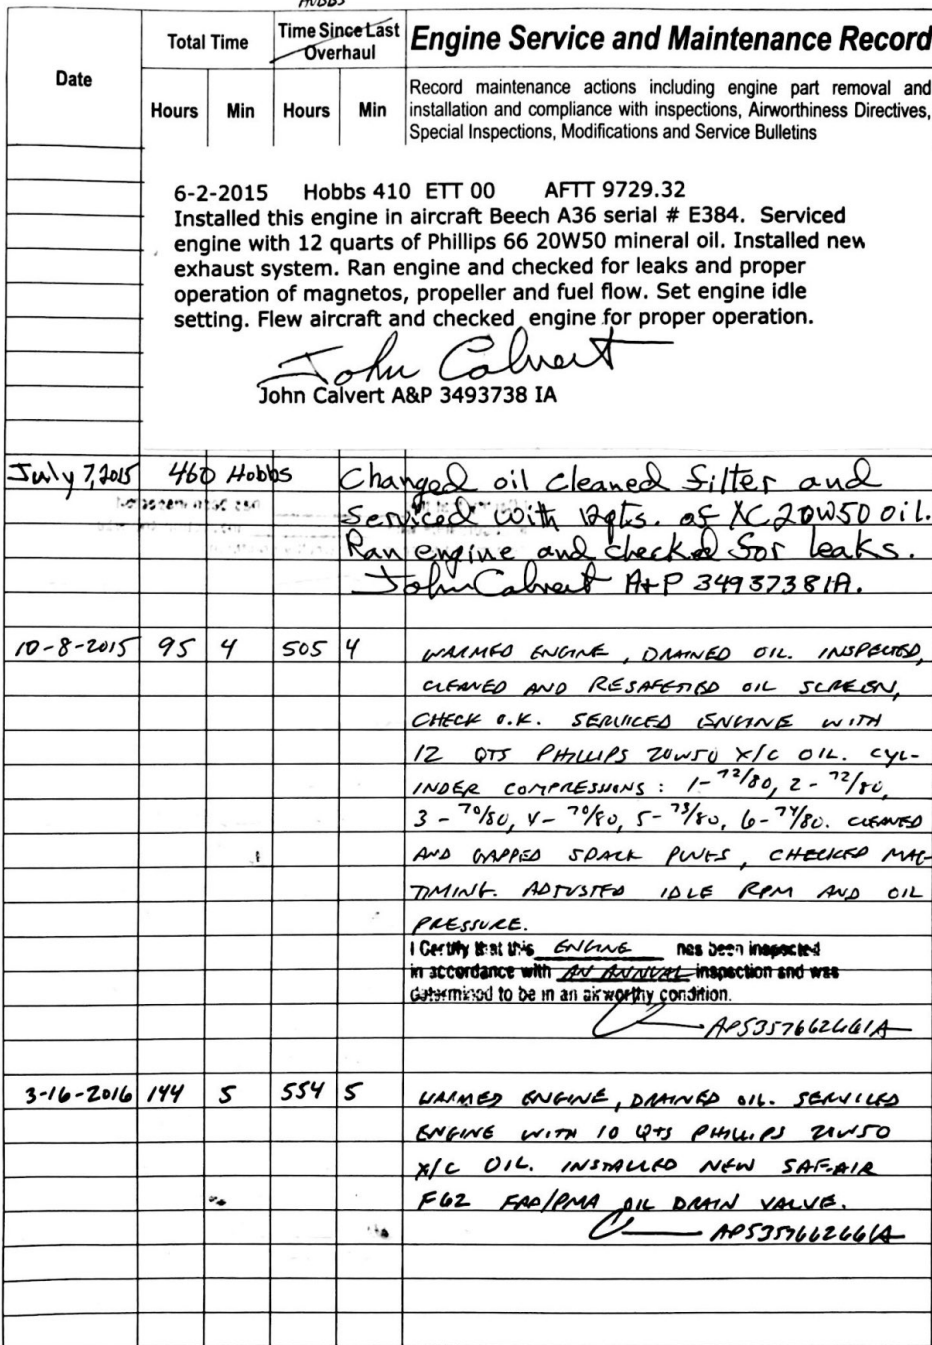 HOBBS
Date
Total Time
Time Since Last Overhaul
Engine Service and Maintenance Record
Hours Min Hours Min
Record maintenance actions including engine part removal and
installation and compliance with inspections, Airworthiness Directives,
Special Inspections, Modifications and Service Bulletins
6-2-2015 Hobbs 410 ETT 00 AFTT 9729.32
Installed this engine in aircraft Beech A36 serial # E384. Serviced
engine with 12 quarts of Phillips 66 20W50 mineral oil. Installed new
exhaust system. Ran engine and checked for leaks and proper
operation of magnetos, propeller and fuel flow. Set engine idle
setting. Flew aircraft and checked engine for proper operation.
John Calvert
John Calvert A&P 3493738 IA
July 7, 2015 460 Hobbs Changed oil cleaned filter and
Serviced with 12qts. of XC 20W50 oil.
Ran engine and checked for leaks.
John Calvert A+P 3493738IA.
10-8-2015 95 4 505 4 WARMED ENGINE, DRAINED OIL. INSPECTED,
CLEANED AND RESAFETIED OIL SCREEN,
CHECK O.K. SERVICED ENGINE WITH
12 QTS PHILLIPS 20W50 X/C OIL. CYL-
INDER COMPRESSIONS: 1-72/80, 2-72/80,
3-70/80, 4-70/80, 5-73/80, 6-74/80. CLEANED
AND GAPPED SPARK PLUGS, CHECKED MAG
TIMING. ADJUSTED IDLE RPM AND OIL
PRESSURE.
I Certify that this ENGINE has been inspected
in accordance with AN ANNUAL inspection and was
determined to be in an airworthy condition.
AP535766266IA
3-16-2016 144 5 554 5 WARMED ENGINE, DRAINED OIL. SERVICED
ENGINE WITH 10 QTS PHILLIPS 20W50
X/C OIL. INSTALLED NEW SAF-AIR
F62 FAA/PMA OIL DRAIN VALVE.
AP535766266IA